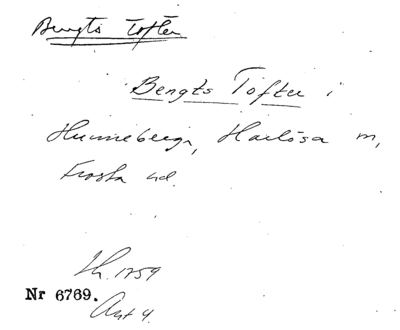 Bengts Tofter
Bengts Tofter i
Hunneberga, Harlösa sn,
Frosta hd.
Lh. 1759
Nr 6769.
Akt 4.